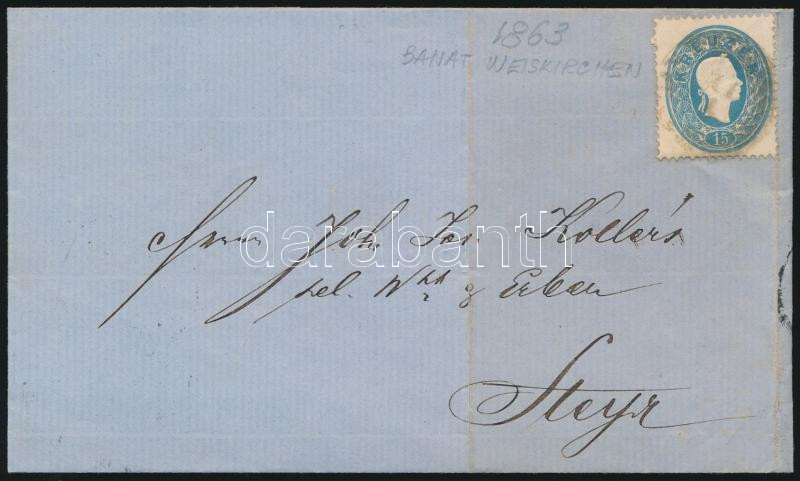 1863
BANAT WEISKIRCHEN
KREUZER
15
Herrn Joh. Jos. Koller's
sel. Wwe & Erben
Steyr
darabanth